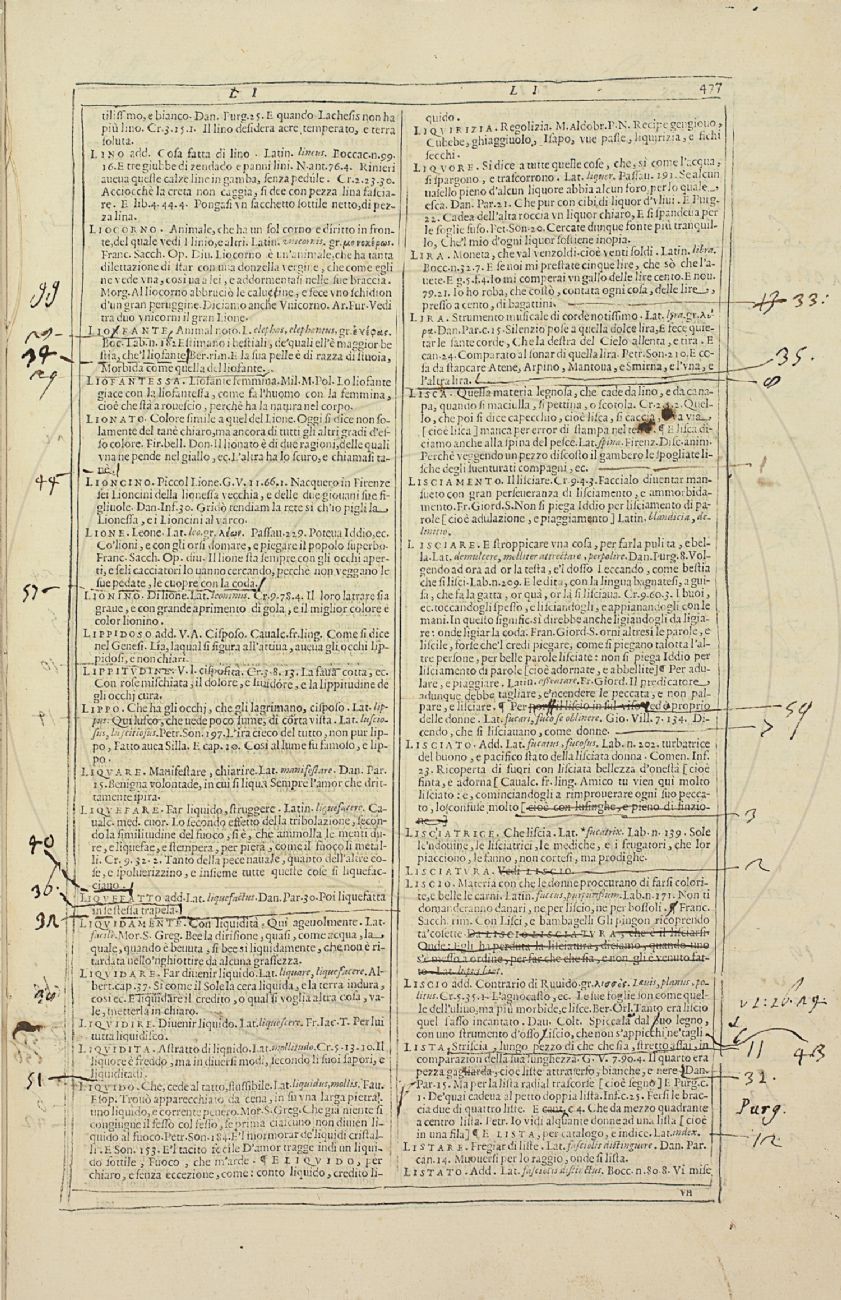 L I
L I 477
tilissimo, e bianco. Dan. Purg. 25. E quando Lachesis non ha
più lino. Cr. 3. 15. 1. Il lino desidera aere temperato, e terra
soluta.
LINO add. Cosa fatta di lino. Latin. lineus. Boccac. n. 99.
16. E tre giubbe di zendado e panni lini. N. ant. 76. 4. Rinieri
aueua quelle calze line in gamba, senza pedule. Cr. 2. 23. 30.
Acciocchè la creta non caggia, si dee con pezza lina fascia-
re. E lib. 4. 44. 4. Pongasi vn sacchetto sottile netto, di pez-
za lina.
LIOCORNO. Animale, che ha un sol corno e diritto in fron-
te, del quale vedi Plinio, e altri. Latin. vnicornis. gr. μονοκέρως.
Franc. Sacch. Op. Diu. Liocorno è un'animale, che ha tanta
dilettazione di star con una donzella vergine, che come egli
ne vede vna, così ua a lei, e addormentasi nelle sue braccia.
Morg. Al liocorno abbruciò le calucine, e fece vno schidion
d'un gran peruggine. Diciamo anche Vnicorno. Ar. Fur. Vedi
tra duo vnicorni il gran Lione.
LIOFANTE, Animal noto. L. elephas, elephantus, gr. ἐλέφας.
Boc. Lab. n. 182. Estimano i bestiali, de'quali ell'è maggior be
stia, che'l liofante Ber. rim. E la sua pelle è di razza di stuoia,
Morbida come quella del liofante.
LIOFANTESSA. Liofante femmina. Mil. M. Pol. Lo liofante
giace con la liofantessa, come fa l'huomo con la femmina,
cioè che sta a rouescio, perchè ha la natura nel corpo.
LIONATO. Colore simile a quel del Lione. Oggi si dice non so-
lamente del tanè chiaro, ma ancora di tutti gli altri gradi d'es-
so colore. Fir. bell. Don. Il lionato è di due ragioni, delle quali
vna ne pende nel giallo, ec. L'altra ha lo scuro, e chiamasi ta-
nè.
LIONCINO. Piccol Lione. G. V. 11. 66. 1. Nacquero in Firenze
sei Lioncini della lionessa vecchia, e delle due giouani sue fi-
gliuole. Dan. Inf. 30. Gridò tendiam la rete sì ch'io pigli la
Lionessa, e i Lioncini al varco.
LIONE. Leone. Lat. leo. gr. λέων. Passau. 229. Poteua Iddio, ec.
Co'lioni, e con gli orsi domare, e piegare il popolo superbo.
Franc. Sacch. Op. diu. Il lione sta sempre con gli occhi aper-
ti, e se li cacciatori lo uanno cercando, perchè non veggano le
sue pedate, le cuopre con la coda.
LIONINO. Di lione. Lat. leoninus. Cr. 9. 78. 4. Il loro latrare sia
graue, e con grande aprimento di gola, e il miglior colore è
color lionino.
LIPPIDOSO add. V. A. Cisposo. Caualc. fr. ling. Come si dice
nel Genesi. Lia, la qual si figura all'attiua, aueua gli occhi lip-
pidosi, e non chiari.
LIPPITUDINE. V. l. cisposità. Cr. 3. 8. 13. La faua cotta, ec.
Con rose mischiata, il dolore, e liuidore, e la lippitudine de
gli occhi cura.
LIPPO. Che ha gli occhi, che gli lagrimano, cisposo. Lat. lip-
pus. Qui lusco, che uede poco lume, di corta vista. Lat. luscio-
sus, luscitiosus. Petr. Son. 197. L'ira cieco del tutto, non pur lip-
po, Fatto auea Silla. E cap. 10. Così al lume fu famoso, e lip-
po.
LIQUARE. Manifestare, chiarire. Lat. manifestare. Dan. Par.
15. Benigna volontade, in cui si liqua Sempre l'amor che drit-
tamente spira.
LIQUEFARE. Far liquido, struggere. Latin. liquefacere. Ca-
ualc. med. cuor. Lo secondo effetto della tribolazione, secon-
do la similitudine del fuoco, si è, che ammolla le menti du-
re, e liquefae, e stempera, per pietà, come il fuoco li metal-
li. Cr. 9. 32. 2. Tanto della pece nauale, quanto dell'altre co-
se, e spoluerizzino, e insieme tutte quelle cose si liquefac-
ciano.
LIQUEFATTO add. Lat. liquefactus. Dan. Par. 30. Poi liquefatta
in se stessa trapela.
LIQUIDAMENTE. Con liquidità. Qui ageuolmente. Lat.
facilè. Mor. S. Greg. Bee la dirisione, quasi, come acqua, la
quale, quando è beuuta, si bee sì liquidamente, che non è ri-
tardata nello'nghiottire da alcuna grassezza.
LIQUIDARE. Far diuenir liquido. Lat. liquare, liquefacere. Al-
bert. cap. 37. Sì come il Sole la cera liquida, e la terra indura,
così ec. E liquidare il credito, o qual si voglia altra cosa, va-
le, metterla in chiaro.
LIQUIDIRE. Diuenir liquido. Lat. liquescere. Fr. Iac. T. Per lui
tutta liquidisco.
LIQUIDITA. Astratto di liquido. Lat. mollitudo. Cr. 5. 13. 10. Il
liquore è freddo, ma in diuersi modi, secondo li suoi sapori, e
liquiditadi.
LIQUIDO. Che, cede al tatto, flussibile. Lat. liquidus, mollis. Fau.
Esop. Trouò apparecchiato da cena, in su vna larga pietra,
uno liquido, e corrente peuero. Mor. S. Greg. Che già niente si
congiugne il fesso col fesso, se prima ciascuno non diuien li-
quido al fuoco. Petr. Son. 184. E'l mormorar de' liquidi cristal-
li. E Son. 153. E'l tacito focile D'amor tragge indi un liqui-
do sottile, Fuoco, che m'arde. ¶ E LIQUIDO, per
chiaro, e senza eccezione, come: conto liquido, credito li-
quido.
LIQVIRIZIA. Regolizia. M. Aldobr. P. N. Recipe gengiouo,
Cubebe, ghiaggiuolo, Isapo, vue passe, liquirizia, e fichi
secchi.
LIQVORE. Si dice a tutte quelle cose, che, sì come l'acqua,
si spargono, e trascorrono. Lat. liquor. Passau. 191. Se alcun
uasello pieno d'alcun liquore abbia alcun foro, per lo quale
esca. Dan. Par. 21. Che pur con cibi, di liquor d'vliui. E Purg.
22. Cadea dell'alta roccia vn liquor chiaro, E si spandeua per
le foglie suso. Pet. Son. 20. Cercate dunque fonte più tranquil-
lo, Che'l mio d'ogni liquor sostiene inopia.
LIRA. Moneta, che val venzoldi: cioè venti soldi. Latin. libra.
Bocc. n. 32. 7. E se noi mi prestate cinque lire, che sò che l'a-
uete. E g. 5. f. 4. Io mi comperai vn gasso delle lire cento. E nou.
79. 21. Io ho roba, che costò, contata ogni cosa, delle lire,
presso a cento, di bagattini.
LIRA. Strumento musicale di corde notissimo. Lat. lyra. gr. λύ-
ρα. Dan. Par. c. 15. Silenzio pose a quella dolce lira, E fece quie-
tar le sante corde, Che la destra del Cielo allenta, e tira. E
can. 24. Comparato al sonar di quella lira. Petr. Son. 210. E co-
sa da stancare Atene, Arpino, Mantoua, e Smirna, e l'vna, e
l'altra lira.
LISCA. Quella materia legnosa, che cade da lino, e da cana-
pa, quando si maciulla, si pettina, o scotola. Cr. Quel-
lo, che poi si dice capecchio, cioè lisca, si caccia via
[cioè lisca] manca per error di stampa nel ¶ E lisca di-
ciamo anche alla spina del pesce. Lat. spina. Firenz. Disc. anim.
Perchè veggendo un pezzo discosto il gambero le spogliate li-
sche degli suenturati compagni, ec.
LISCIAMENTO. Il lisciare. Cr. 9. 4. 3. Faccialo diuentar man-
sueto con gran perseueranza di lisciamento, e ammorbida-
mento. Fr. Giord. S. Non si piega Iddio per lisciamento di pa-
role [cioè adulazione, e piaggiamento] Latin. blandicia, de-
linitio.
LISCIARE. E stroppicare vna cosa, per farla pulita, e bel-
la. Lat. demulcere, molliter attrectare, perpolire. Dan. Purg. 8. Vol-
gendo ad ora ad or la testa, e'l dosso Leccando, come bestia
che si lisci. Lab. n. 209. E le dita, con la lingua bagnatesi, a gui-
sa, che fa la gatta, or quà, or là si lisciaua. Cr. 9. 60. 3. I buoi,
ec. toccandogli spesso, e lisciandogli, e appianandogli con le
mani. In questo signific. si direbbe anche ligiandogli da ligia-
re: onde ligiar la coda. Fran. Giord. S. orni altresì le parole, e
liscile, forse che'l credi piegare, come si piegano talotta l'al-
tre persone, per belle parole lisciate: non si piega Iddio per
lisciamento di parole [cioè adornate, e abbellite] ¶ Per adu-
lare, e piaggiare. Latin. assentare. Fr. Giord. Il predicatore
adunque debbe tagliare, e'ncendere le peccata, e non pal-
pare, e lisciare. ¶ Per porsi il liscio in sul viso ed è proprio
delle donne. Lat. fucari, fuco se oblinere. Gio. Vill. 7. 134. Di-
cendo, che si lisciauano, come donne.
LISCIATO. Add. Lat. fucatus, fucosus. Lab. n. 202. turbatrice
del buono, e pacifico stato della lisciata donna. Comen. Inf.
23. Ricoperta di fuori con lisciata bellezza d'onestà [cioè
finta, e adorna [Caualc. fr. ling. Amico tu vien qui molto
lisciato: e, cominciandogli a rimprouerare ogni suo pecca-
to, lo confuse molto [cioè con lusinghe, e pieno di finzio-
ne.]
LISCIATRICE. Che liscia. Lat. *fucatrix. Lab. n. 139. Sole
le'ndouine, le lisciatrici, le mediche, e i frugatori, che lor
piacciono, le fanno, non cortesi, ma prodighe.
LISCIATVRA. Vedi LISCIO.
LISCIO. Materia con che le donne proccurano di farsi colori-
te, e belle le carni. Latin. fucus, purpurissum. Lab. n. 171. Non ti
domanderanno danari, ne per liscio, ne per bossoli. Franc.
Sacch. rim. Con Lisci, e bambagelli Gli pingon ricoprendo
ta' colette. Da LISCIO LISCIATVRA, che è il lisciarsi.
Onde: Egli ha perduta la lisciatura, diciamo, quando uno
s'è messo a ordine, per far che che sia, e non gli è venuto fat-
to. Lat.
LISCIO add. Contrario di Ruuido. gr. λισσός. Lauis, planus, po-
litus. Cr. 5. 35. 1. L'agnocasto, ec. Le sue foglie son come quel-
le dell'uliuo, ma più morbide, e lisce. Ber. Orl. Tanto era liscio
quel sasso incantato. Dau. Colt. Spiccala dal suo legno,
con uno strumento d'osso liscio, che non s'appicchi ne'tagli
LISTA, Striscia, lungo pezzo di che che sia, stretto assai, in
comparazion della sua lunghezza. G. V. 7. 90. 4. Il quarto era
pezza gagliarda, cioè liste attrauerso, bianche, e nere Dan.
Par. 15. Ma per la lista radial trascorse [cioè segno] E Purg. c.
1. De'quai cadeua al petto doppia lista. Inf. c. 25. Fersi le brac-
cia due di quattro liste. E 4. Che da mezzo quadrante
a centro lista. Petr. Io vidi alquante donne ad una lista [cioè
in una fila] ¶ E LISTA, per catalogo, e indice. Lat. index.
LISTARE. Fregiar di liste. Lat. fasciolis distinguere. Dan. Par.
can. 14. Muouersi per lo raggio, onde si lista.
LISTATO. Add. Lat. fasciolis distinctus. Bocc. n. 80. 8. Vi mise
VH
99
34
29
44
57
40
36.
32
30
51
33:
35.
8
1
59
7
3
2
v 1: 20. 29.
11
43
32.
Purg.
12